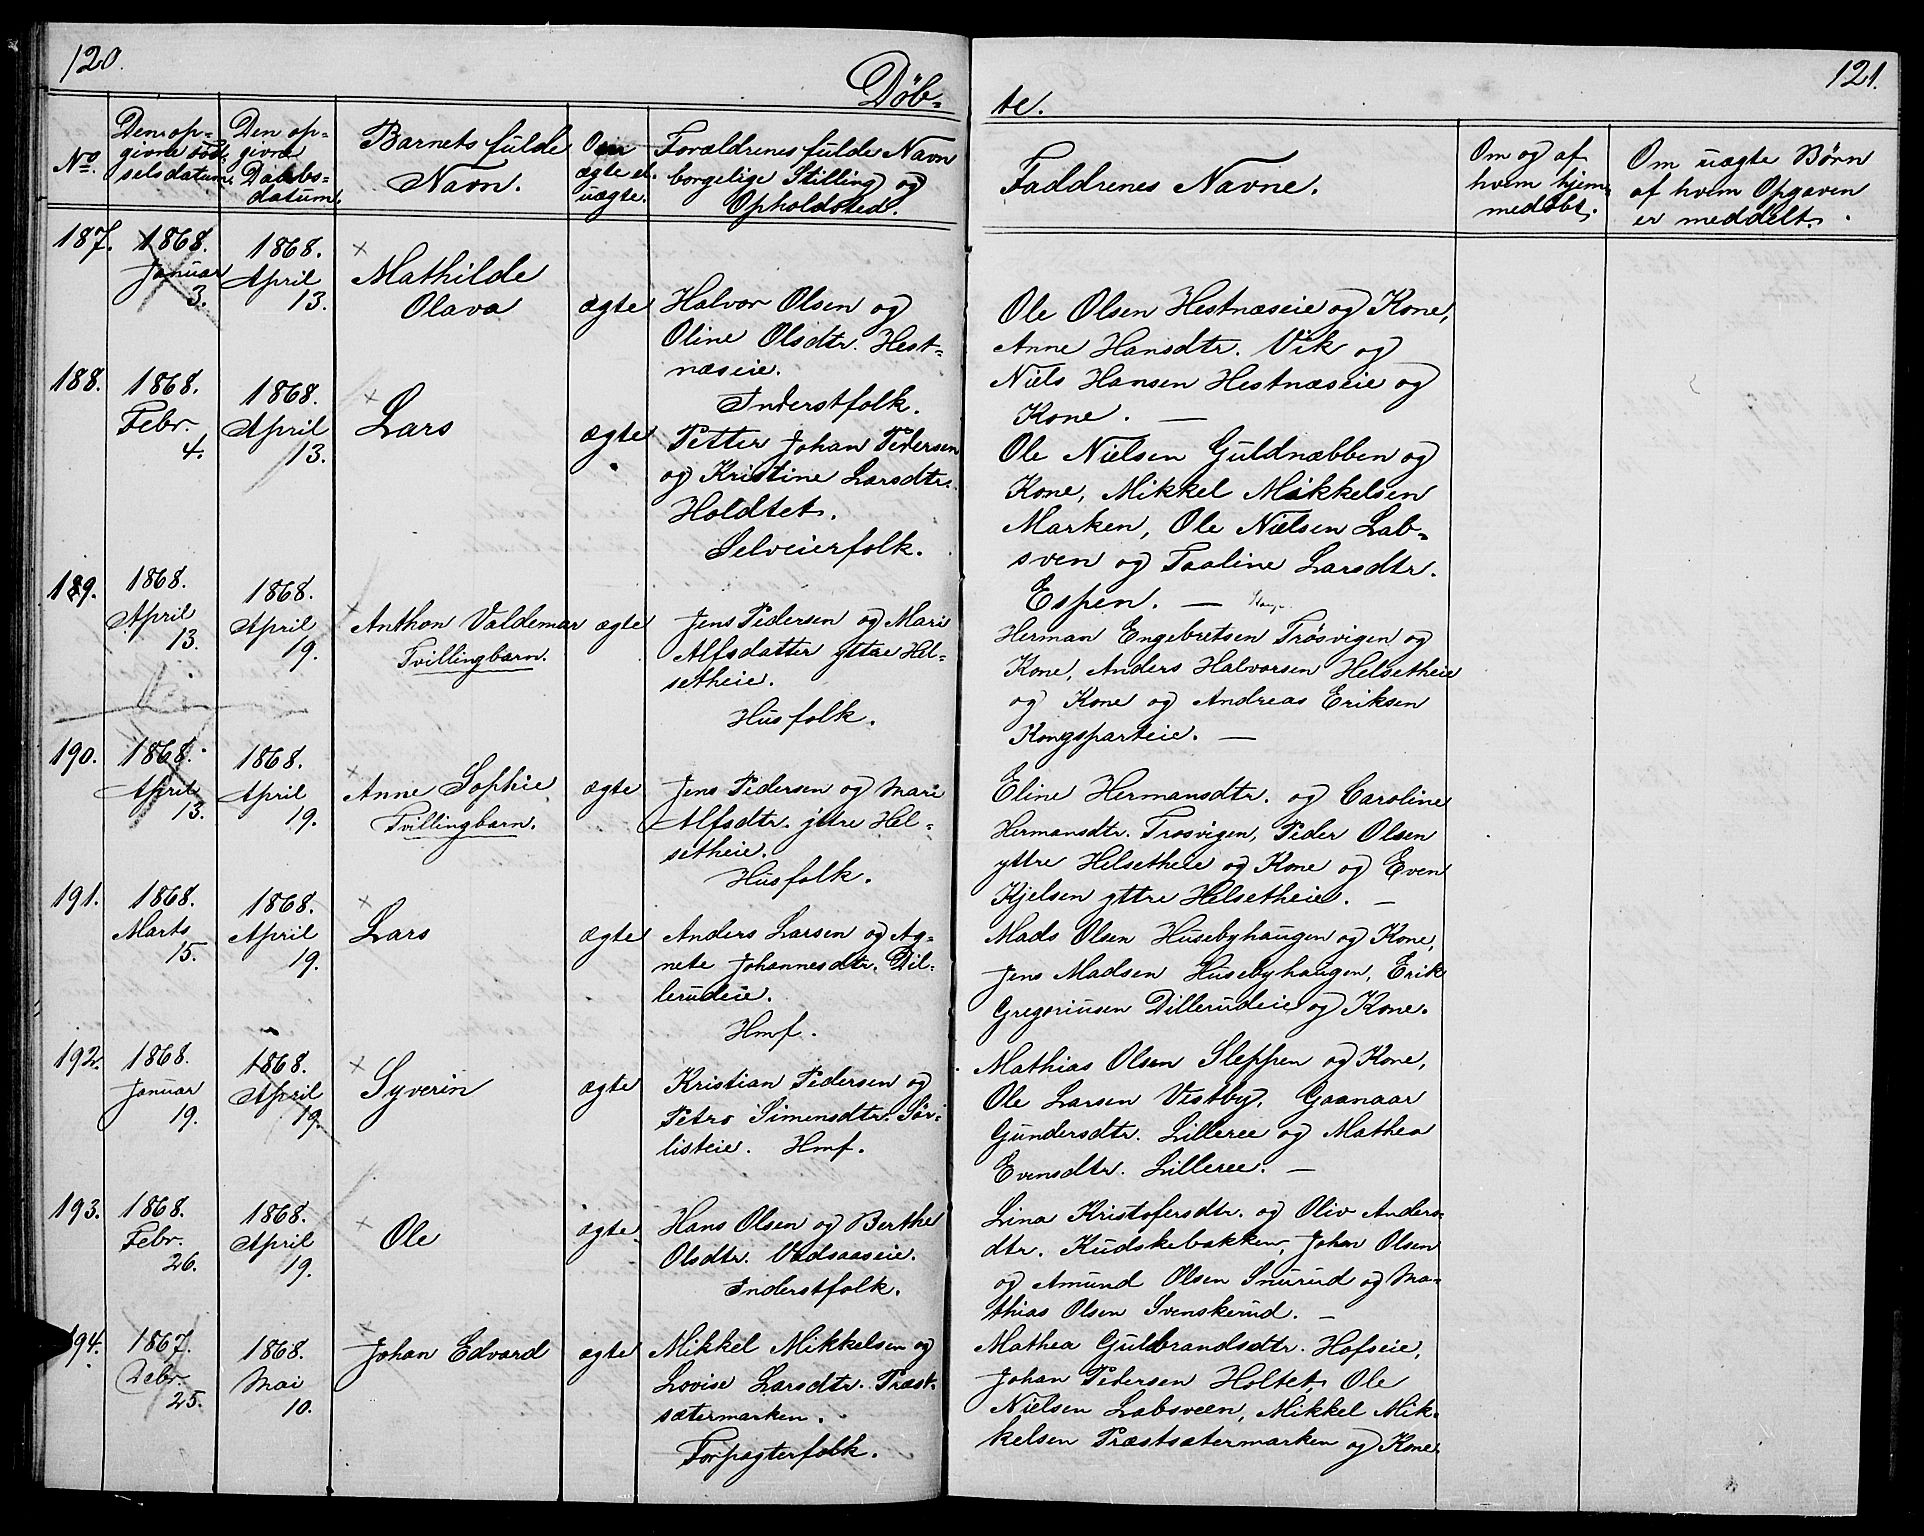 120.
121.
Døb-
te.
No.
Den op-
givne Föd-
selsdatum.
Den op-
givne
Daabs-
datum.
Barnets fulde
Navn.
Om
ægte el.
uægte.
Forældrenes fulde Navn
borgelige Stilling og
Opholdsted.
Faddrenes Navne.
Om og af
hvem hjem-
medøbt.
Om uægte Børn
af hvem Opgaven
er meddelt.
187.
1868.
Januar
3.
1868.
April
13.
Mathilde
Olava
ægte
Halvor Olsen og
Oline Olsdtr. Hest-
næseie.
Inderstfolk.
Ole Olsen Hestnæseie og Kone,
Anne Hansdtr. Vik og
Niels Hansen Hestnæseie og
Kone. —
188.
1868.
Febr.
4.
1868.
April
13.
Lars
ægte
Petter Johan Pedersen
og Kristine Larsdtr.
Holdtet.
Selveierfolk.
Ole Nielsen Guldnæbben og
Kone, Mikkel Mikkelsen
Marken, Ole Nielsen Lab-
sven og Paaline Larsdtr.
Espen. —
189.
1868.
April
13.
1868.
April
19.
Anthon Valdemar
Tvillingbarn.
ægte
Jens Pedersen og Mari
Alfsdatter yttre Hel-
setheie.
Husfolk.
Herman Engebretsen Trøsvigen og
Kone, Anders Halvorsen Helsetheie
og Kone og Andreas Eriksen
Kongsparteie. —
190.
1868.
April
13.
1868.
April
19.
Anne Sophie
Tvillingbarn.
ægte
Jens Pedersen og Mari
Alfsdtr. yttre Hel-
setheie.
Husfolk.
Eline Hermansdtr. og Caroline
Hermansdtr. Trosvigen, Peder Olsen
yttre Helsetheie og Kone og Even
Kjelsen yttre Helsetheie. —
191.
1868.
Marts
15.
1868.
April
19.
Lars
ægte
Anders Larsen og Ag-
nete Johannesdtr. Dil-
lerudeie.
Hmf.
Mads Olsen Husebyhaugen og Kone,
Jens Madsen Husebyhaugen, Erik
Gregoriusen Dillerudeie og Kone.
192.
1868.
Januar
19.
1868.
April
19.
Syverin
ægte
Kristian Pedersen og
Petra Simensdtr. Sör-
listeie. Hmf.
Mathias Olsen Sleppen og Kone,
Ole Larsen Vestby, Gaanaar
Gundersdtr. Lilleree og Mathea
Evensdtr. Lilleree. —
193.
1868.
Febr.
26.
1868.
April
19.
Ole
ægte
Hans Olsen og Berthe
Olsdtr. Vadsaaseie.
Inderstfolk.
Lina Kristofersdtr. og Oliv Anders-
dtr. Kudskebakken, Johan Olsen
og Amund Olsen Snurud og Ma-
thias Olsen Svenskerud. —
194.
1867.
Debr.
25.
1868.
Mai
10.
Johan Edvard
ægte
Mikkel Mikkelsen og
Lovise Larsdtr. Præst-
sætermarken.
Forpagterfolk.
Mathea Gulbrandsdtr. Hofseie,
Johan Pedersen Holtet, Ole
Nielsen Labsveen, Mikkel Mik-
kelsen Præstsætermarken og Kone